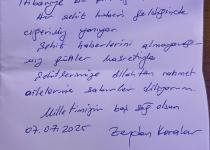 itibariyle
Her şehit haberi geldiğinde
ciğerimiz yanıyor.
Şehit haberlerini almayacağı-
mız günler hasretiyle
Şehitlerimize Allahtan rahmet
ailelerine sabırlar diliyorum.
Milletimizin başı sağ olsun
07.07.2025 Zeydan Karalar